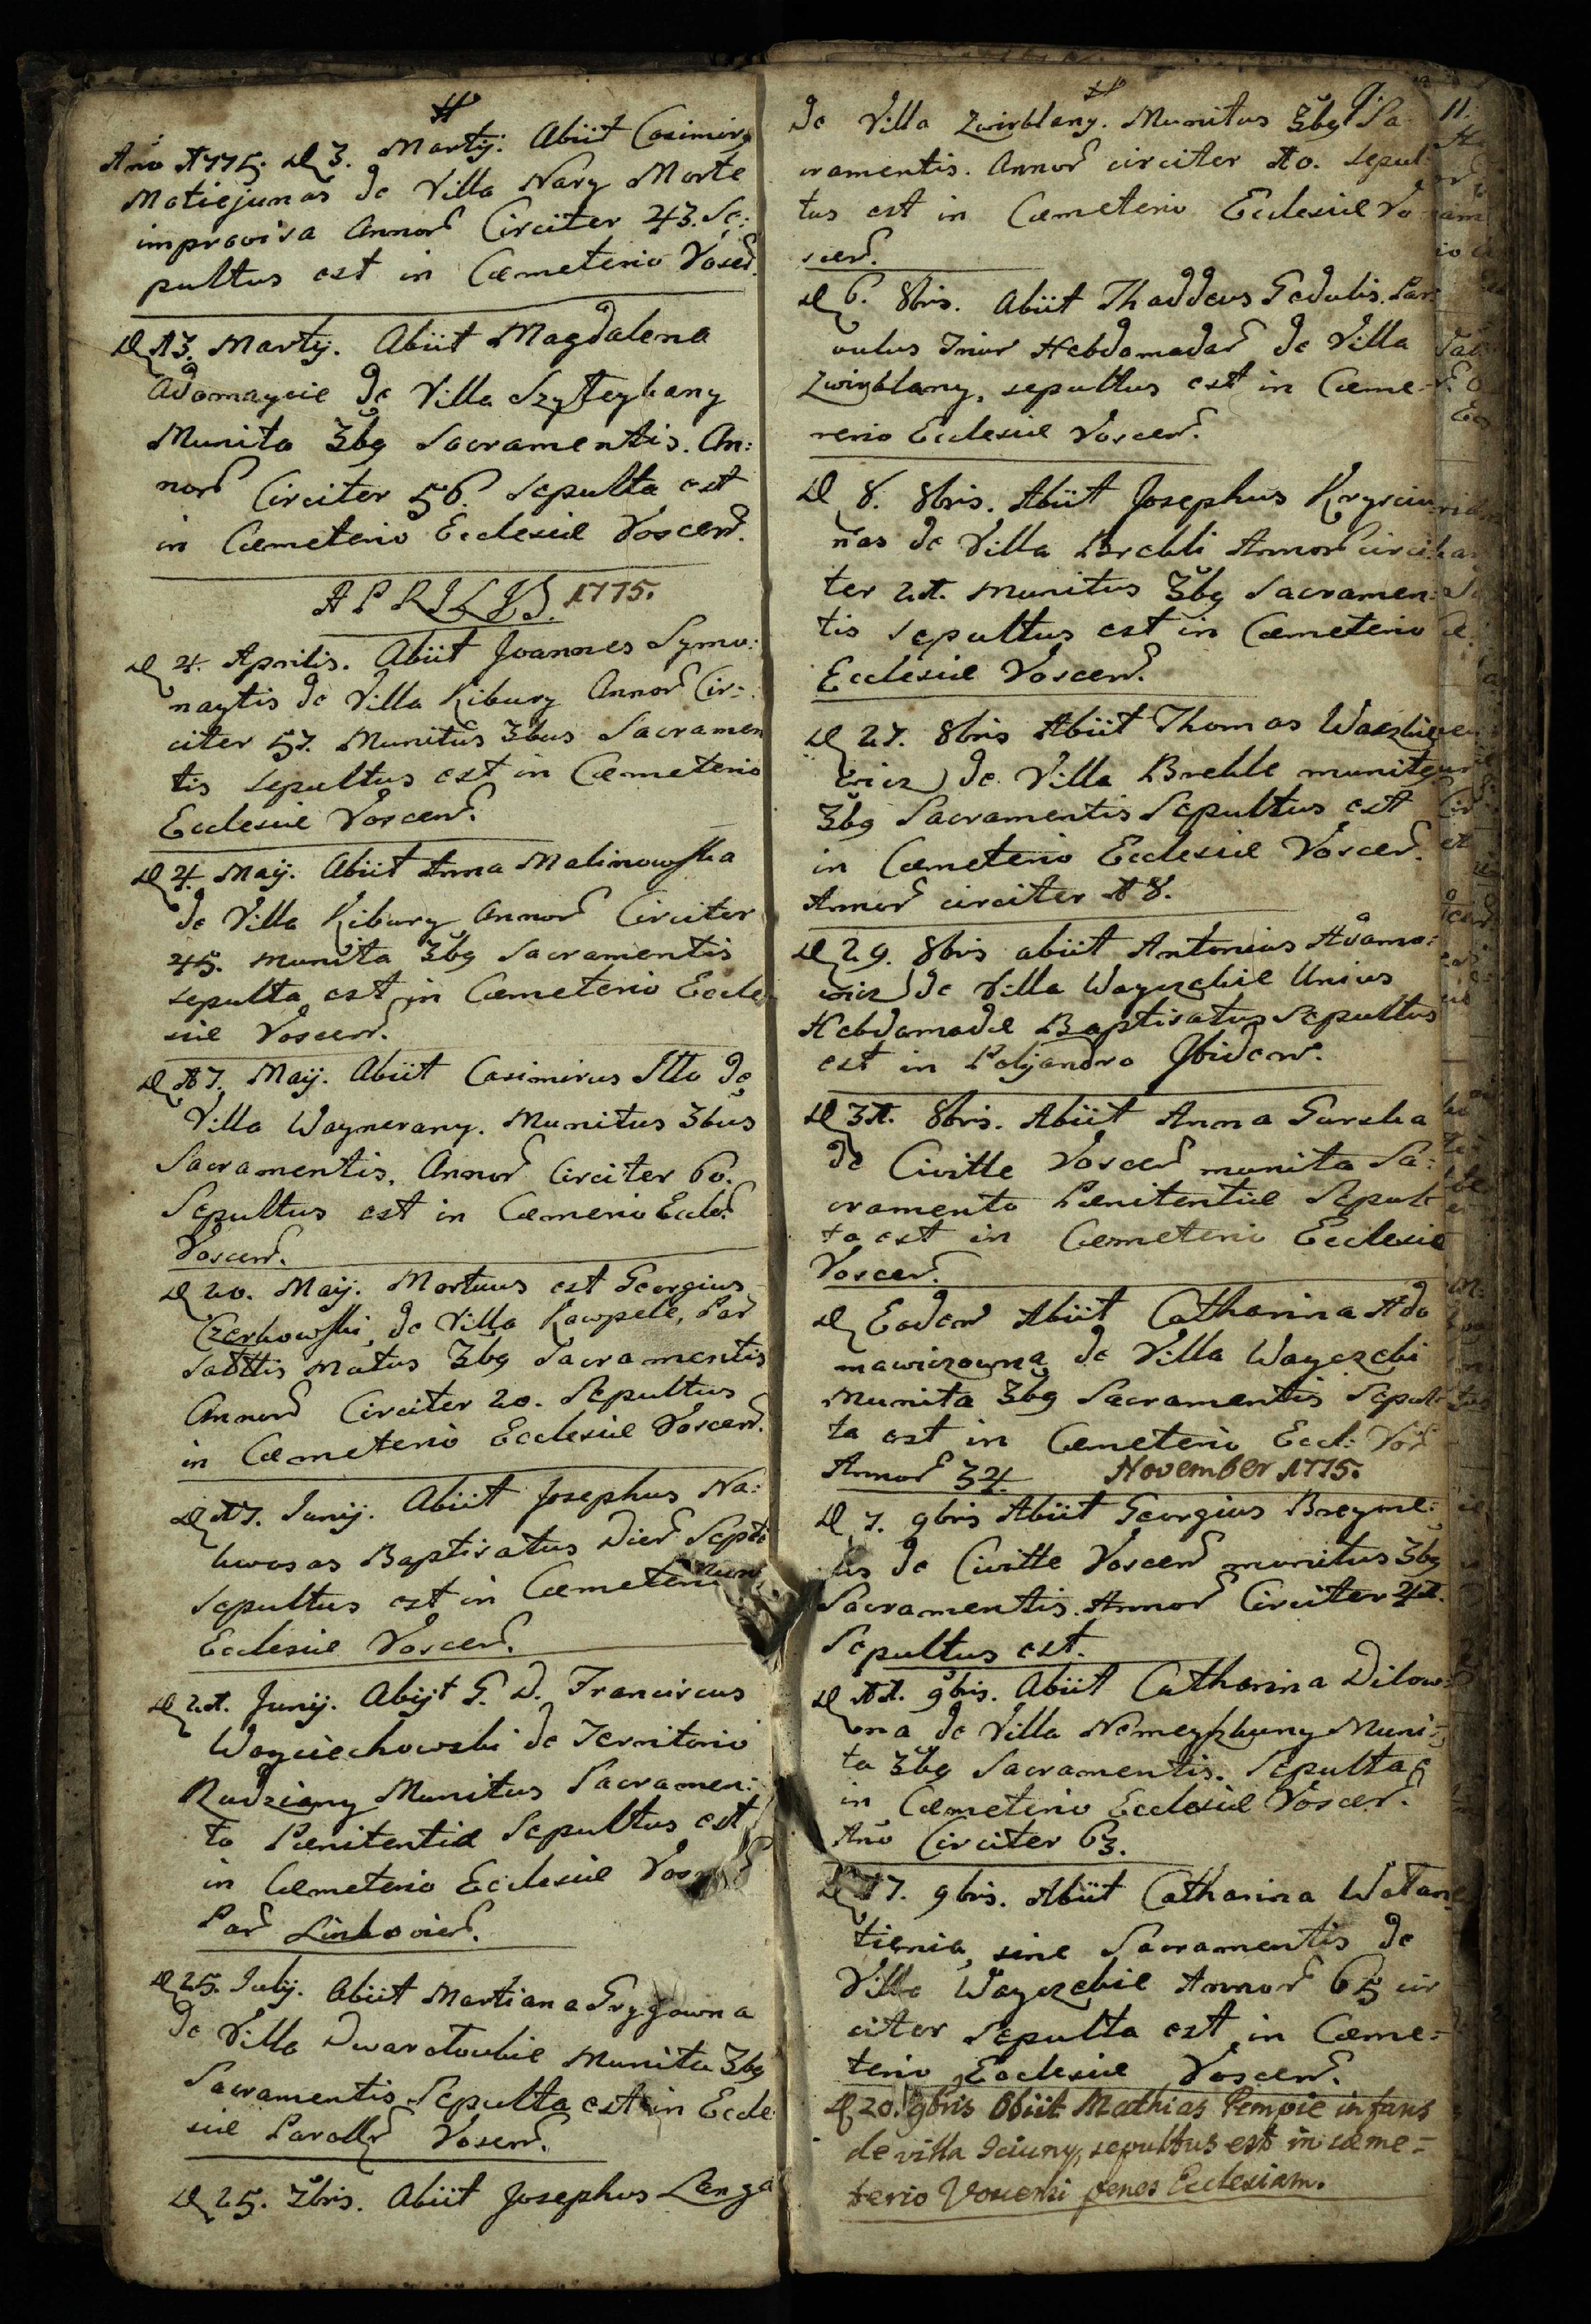 Año 1775. D 3. Martij. Abiit Casimirg
Matiejunas de Villa Nary Morte
improvisa Annor Circiter 43. Se:
pultus est in Cæmeterio Voscen.
D 13. Martij. Abiit Magdalena
Adomaycie de Villa Szyteykany
Munita 3bg Sacramentis. An:
nor Circiter 56. Sepulta est
in Cæmeterio Ecclesiæ Voscen.
APRILIS. 1775.
D 4. Aprilis. Abiit Joannes Symo:
naytis de Villa Kibury Annor Cir:
citer 57. Munitus 3bus Sacramen
tis sepultus est in Cæmeterio
Ecclesiæ Voscen.
D 4. Maij. Abiit Anna Malinowska
de Villa Kibury Annor Circiter
45. munita 3bg Sacramentis
sepulta est in Cæmeterio Eccle
siæ Voscen.
D 17. Maij. Abiit Casimirus Itto de
Villa Waynerany. Munitus 3bus
Sacramentis. Annor Circiter 60.
Sepultus est in Cæmerio Eccle
Voscen.
D 20. Maij. Mortuus est Georgius
Czerkowski, de Villa Kawpele, Par
Satttis Matus 3bg Sacramentis
Annor Circiter 20. Sepultus
in Cæmeterio Ecclesiæ Voscen.
D 17. Junij. Abiit Josephus Na:
kwosas Baptisatus Dier Septe
sepultus est in Cæmeterio
Ecclesiæ Voscen.
D 21. Junij. Abijt G. D. Franciscus
Woyciechowski de Territorio
Rudziany Munitus Sacramen:
to Pænitentiæ Sepultus est
in Cæmeterio Ecclesiæ
Par Linkovien.
D 25. Julij. Abiit Martiana Grygowna
de Villa Dwaratowkie Munita 3bg
Sacramentis Sepulta est in Eccle
siæ Voscen.
D 25. 7bris. Abiit Josephus Lenga
de Villa Zwirblany. Munitus 3bg Sa
cramentis. Annor circiter 10. sepul:
tus est in Cæmeterio Ecclesiæ Vo
scen.
D 6. 8bris. Abiit Thaddeus Gedulis. Par
vulus Trium Hebdomadar de Villa
Zwirblany, sepultus est in Cæme-
terio Ecclesiæ Voscen.
D 8. 8bris. Abiit Josephus Krysciu
nas de Villa Brekli Annor circi
ter 21. munitus 3bg Sacramen:
tis sepultus est in Cæmeterio
Ecclesiæ Voscen.
D 27. 8bris Abiit Thomas Waszkie
wicz de Villa Brekle munitg
3bg Sacramentis Sepultus est
in Cæmeterio Ecclesiæ Voscen.
Annor circiter 18.
D 29. 8bris abiit Antonius Adamo:
wicz de Villa Wayczekie Unius
Hebdomadæ Baptisatus Sepultus
est in Polyandro Ibidem.
D 31. 8bris. Abiit Anna Gurska
de Civitte Voscen munita Sa:
cramento Pænitentiæ Sepul
ta est in Cæmeterio Ecclesiæ
Voscen.
D Eadem Abiit Catharina Ada
mawiczowna de Villa Wayczeki
Munita 3bg Sacramentis Sepul
ta est in Cæmeterio Eccl: Vos
Annor 34. November 1775.
D 7. 9bris Abiit Georgius Breyme:
lis de Civitte Voscen munitus 3bg
Sacramentis. Annor Circiter 41.
Sepultus est.
D 11. 9bris. Abiit Catharina Dilow
na de Villa Nemeykuny Muni:
ta 3bg Sacramentis. Sepulta e
in Cæmeterio Ecclesiæ Voscen.
Año Circiter 63.
D 17. 9bris. Abiit Catharina Watane
tienia, sine Sacramentis de
Villa Wayczekie Annor 65 cir
citer sepulta est in Cæme:
terio Ecclesiæ Voscen.
D 20. 9bris Obiit Mathias Pempie infans
de villa Iciuny, sepultus est in cæme-
terio Voscensi penes Ecclesiam.